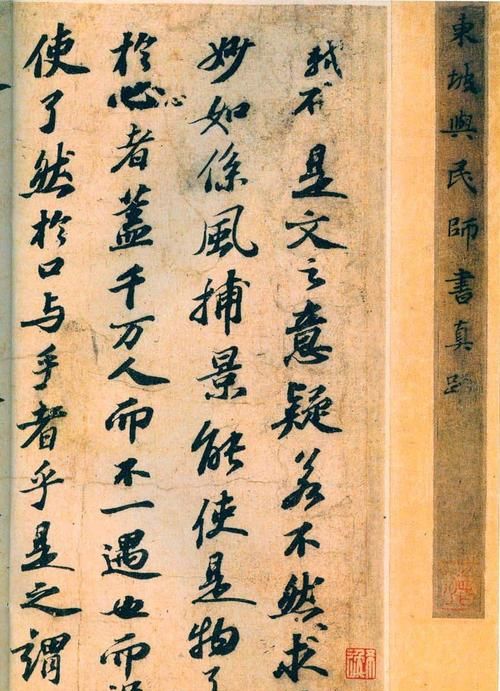 東坡與民師書真跡
軾不是文之意疑若不然求
妙如係風捕景能使是物了
於心者蓋千万人而不一遇也而
使了然於口与手者乎是之謂